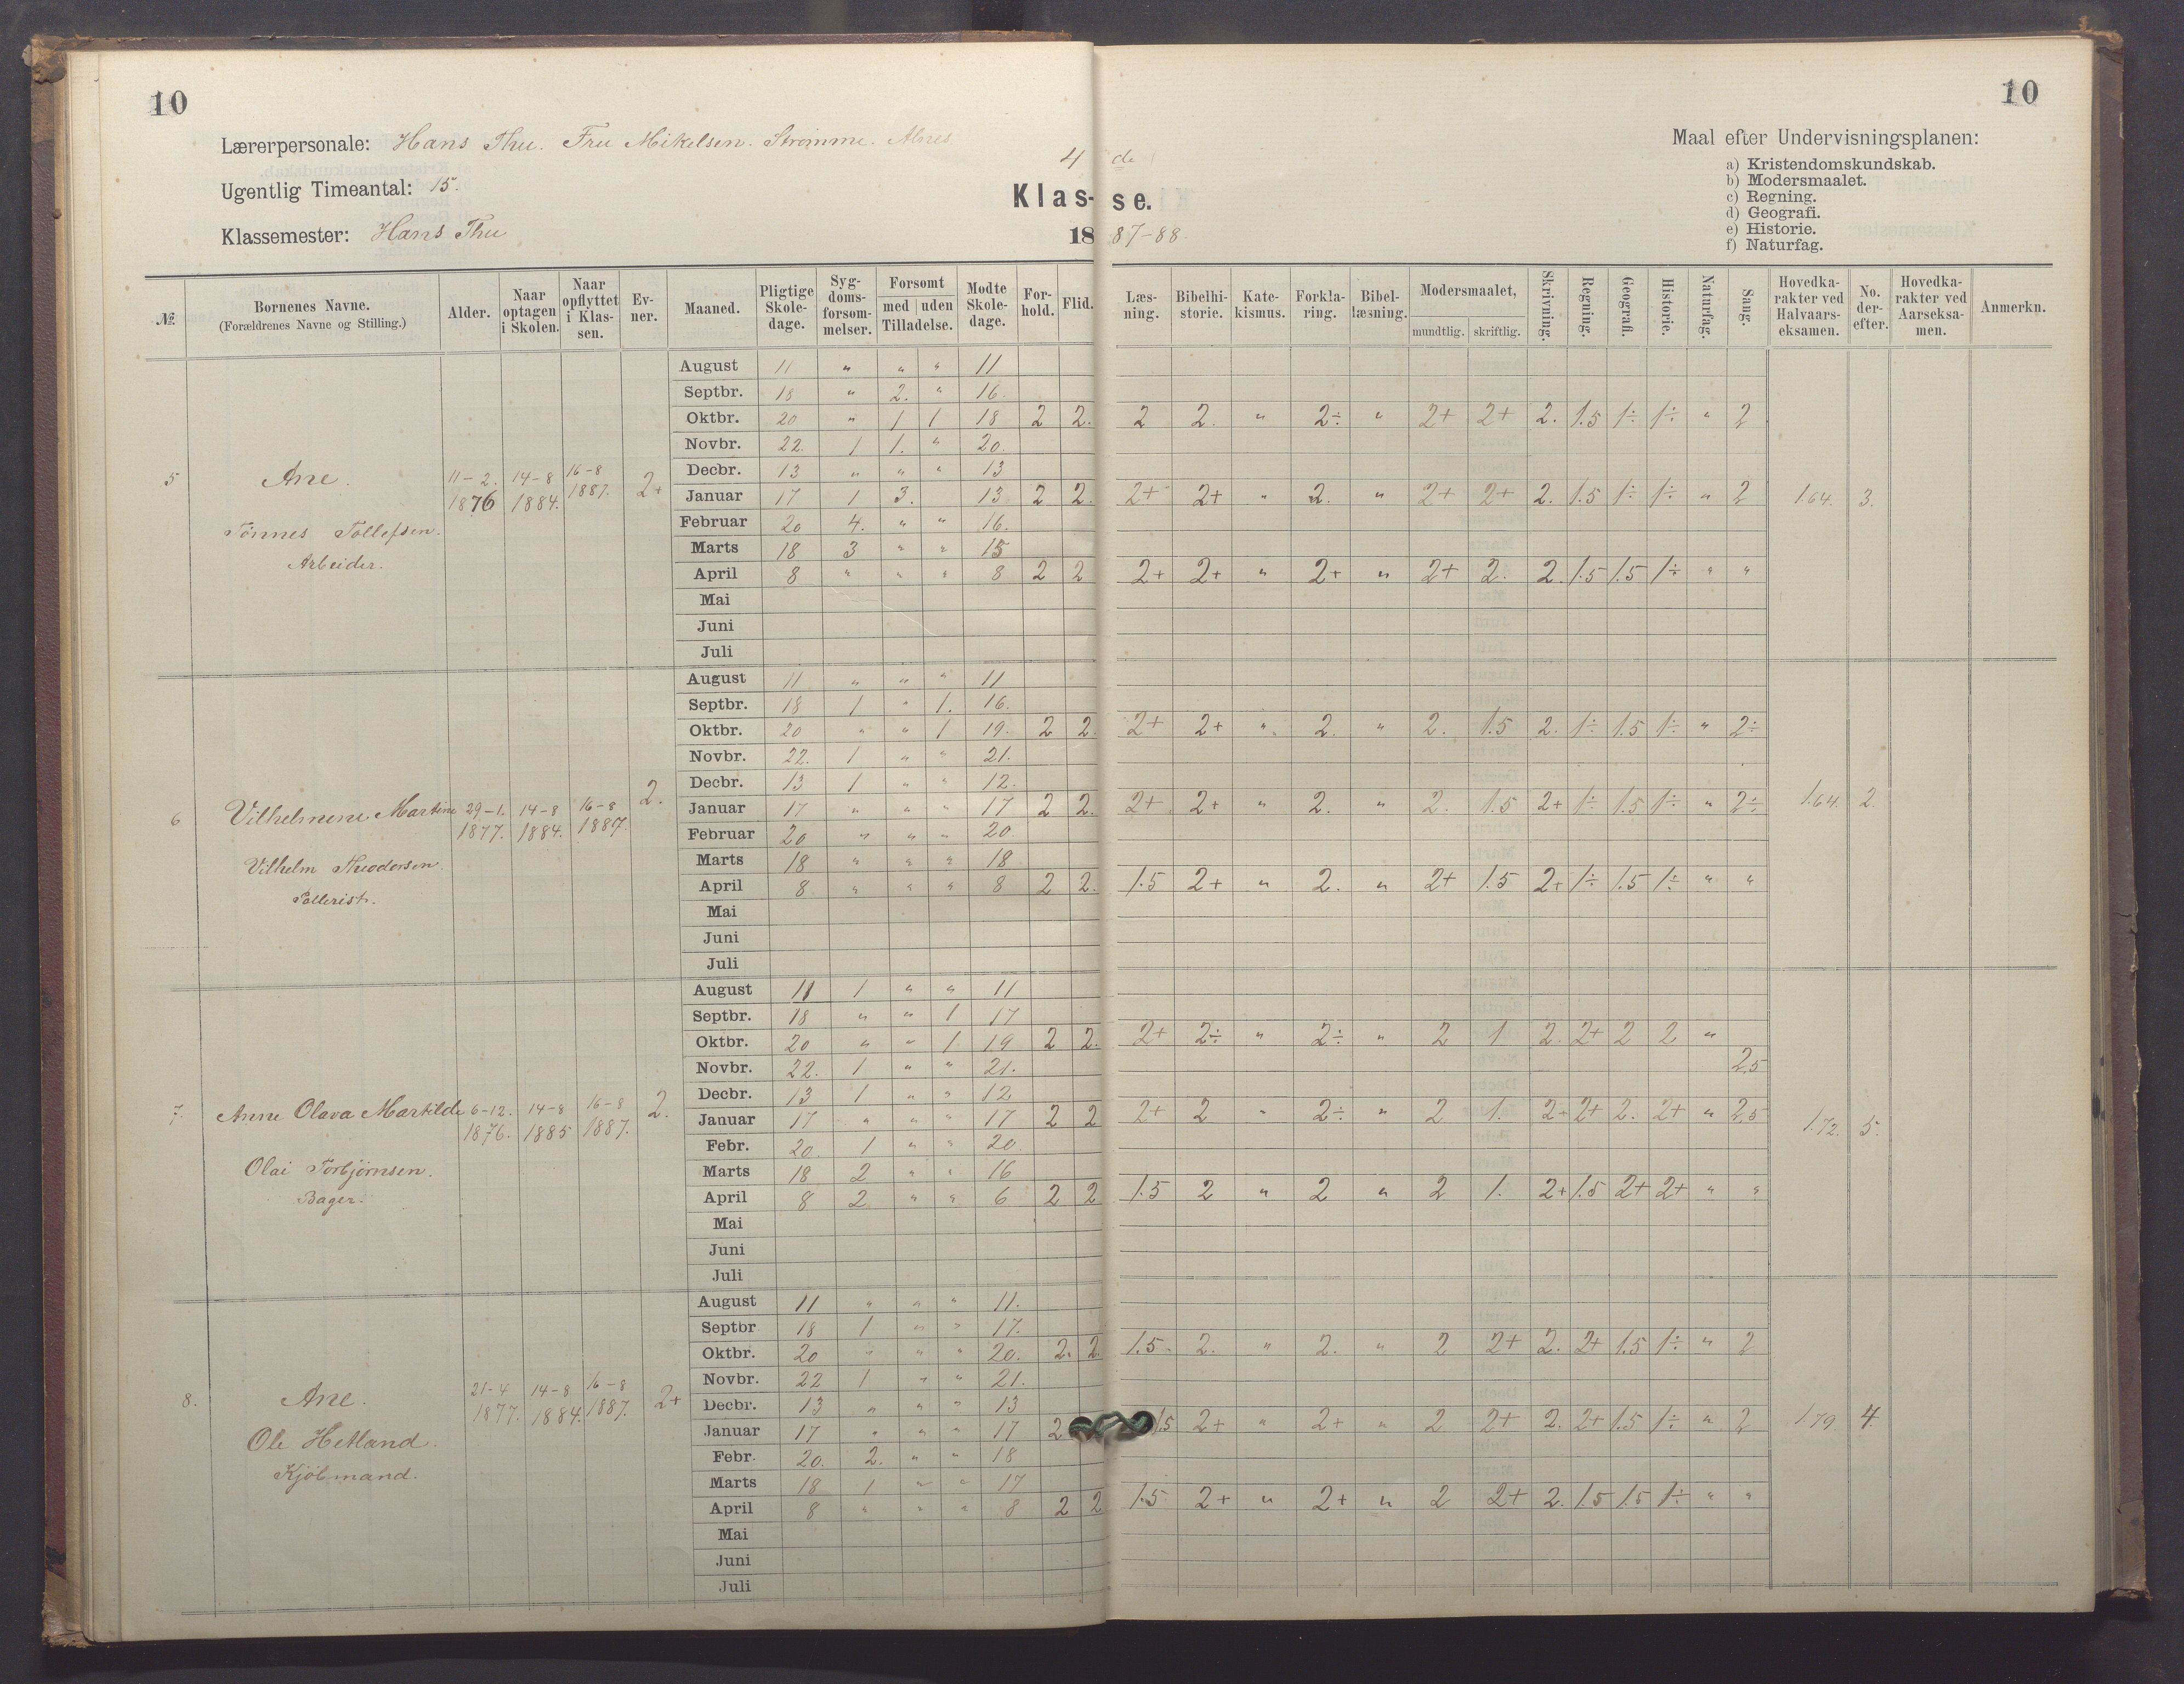 10
10
Lærerpersonale: Hans Thu. Fru Mikelsen. Strømme.
Ugentlig Timeantal: 15.
Klassemester: Hans Thu
4 de
Klas-se.
18 87-88.
Maal efter Undervisningsplanen:
a) Kristendomskundskab.
b) Modersmaalet.
c) Regning.
d) Geografi.
e) Historie.
f) Naturfag.
№. Bornenes Navne. (Forældrenes Navne og Stilling.) Alder. Naar optagen i Skolen. Naar opflyttet i Klas-sen. Ev-ner. Maaned. Pligtige Skole-dage. Syg-doms-forsom-melser. Forsomt med | uden Tilladelse. Modte Skole-dage. For-hold. Flid. Læs-ning. Bibelhi-storie. Kate-kismus. Forkla-ring. Bibel-læsning. Modersmaalet, mundtlig. skriftlig. Skrivning. Regning. Geografi. Historie. Naturfag. Sang. Hovedka-rakter ved Halvaars-eksamen. No. der-efter. Hovedka-rakter ved Aarseksa-men. Anmerkn.
5 Ane. 11-2. 1876 14-8 1884. 16-8 1887. 2+
Tönnes Tollefsen.
Arbeider.
August 11 " " " 11
Septbr. 18 " 2. " 16.
Oktbr. 20 " 1 1 18 2 2. 2 2. " 2÷ " 2+ 2+ 2. 1.5 1÷ 1÷ " 2
Novbr. 22. 1 1. " 20.
Decbr. 13 " " " 13
Januar 17 1 3. 13 2 2. 2+ 2+ " 2. " 2+ 2+ 2. 1.5 1÷ 1÷ " 2 1.64. 3.
Februar 20 4. " " 16.
Marts 18 3 " " 15
April 8 " " " 8 2 2 2+ 2+ " 2+ " 2+ 2. 2. 1.5 1.5 1÷ " "
Mai
Juni
Juli
6 Vilhelmene Martine 29-1. 1877. 14-8 1884. 16-8 1887. 2.
Vilhelm Theodorsen.
August 11 " " " 11
Septbr. 18 1 " 1. 16.
Oktbr. 20 " " 1 19. 2 2. 2+ 2+ " 2. " 2. 1.5 2. 1÷ 1.5 1÷ " 2÷
Novbr. 22. 1 " " 21.
Decbr. 13 1 " " 12.
Januar 17 " " " 17 2 2. 2+ 2+ " 2. " 2. 1.5 2+ 1÷ 1.5 1÷ " 2÷ 1.64. 2.
Februar 20 " " " 20.
Marts 18 " " " 18
April 8 " " " 8 2 2. 1.5 2+ " 2. " 2+ 1.5 2+ 1÷ 1.5 1÷ " "
Mai
Juni
Juli
7. Anne Olava Martilde 6-12. 1876. 14-8 1885 16-8 1887. 2.
Olai Torbjörnsen.
Bager.
August 11 1 " " 11
Septbr. 18 " " 1 17
Oktbr. 20 " " 1 19 2 2. 2+ 2÷ " 2÷ " 2 1 2. 2+ 2 2 "
Novbr. 22. 1 " " 21. 2.5
Decbr. 13 1 " " 12
Januar 17 " " " 17 2 2 2+ 2 " 2÷ " 2 1. 2+ 2+ 2. 2+ " 2.5 1.72. 5.
Febr. 20. 1 " " 20.
Marts 18 2 " " 16
April 8 2 " " 6 2 2 1.5 2 " 2 " 2 1. 2+ 1.5 2+ 2+ " "
Mai
Juni
Juli
8. Ane. 21-4 1877. 14-8 1884. 16-8 1887. 2+
Ole Hetland.
Kjöbmand.
August 11 " " " 11.
Septbr 18 1 " " 17.
Oktbr. 20 " " " 20. 2. 2. 1.5. 2. " 2. " 2 2+ 2. 2+ 1.5 1÷ " 2
Novbr. 22 1 " " 21.
Decbr. 13 " " " 13
Januar 17 " " " 17 2 1.5 2+ " 2+ " 2 2+ 2. 2+ 1.5 1÷ " 2 1.79. 4.
Febr. 20. 2. " " 18
Marts 18 1 " " 17
April 8 " " " 8 2 2 1.5 2+ " 2+ " 2 2+ 2. 1.5 1.5 1÷ " "
Mai
Juni
Juli